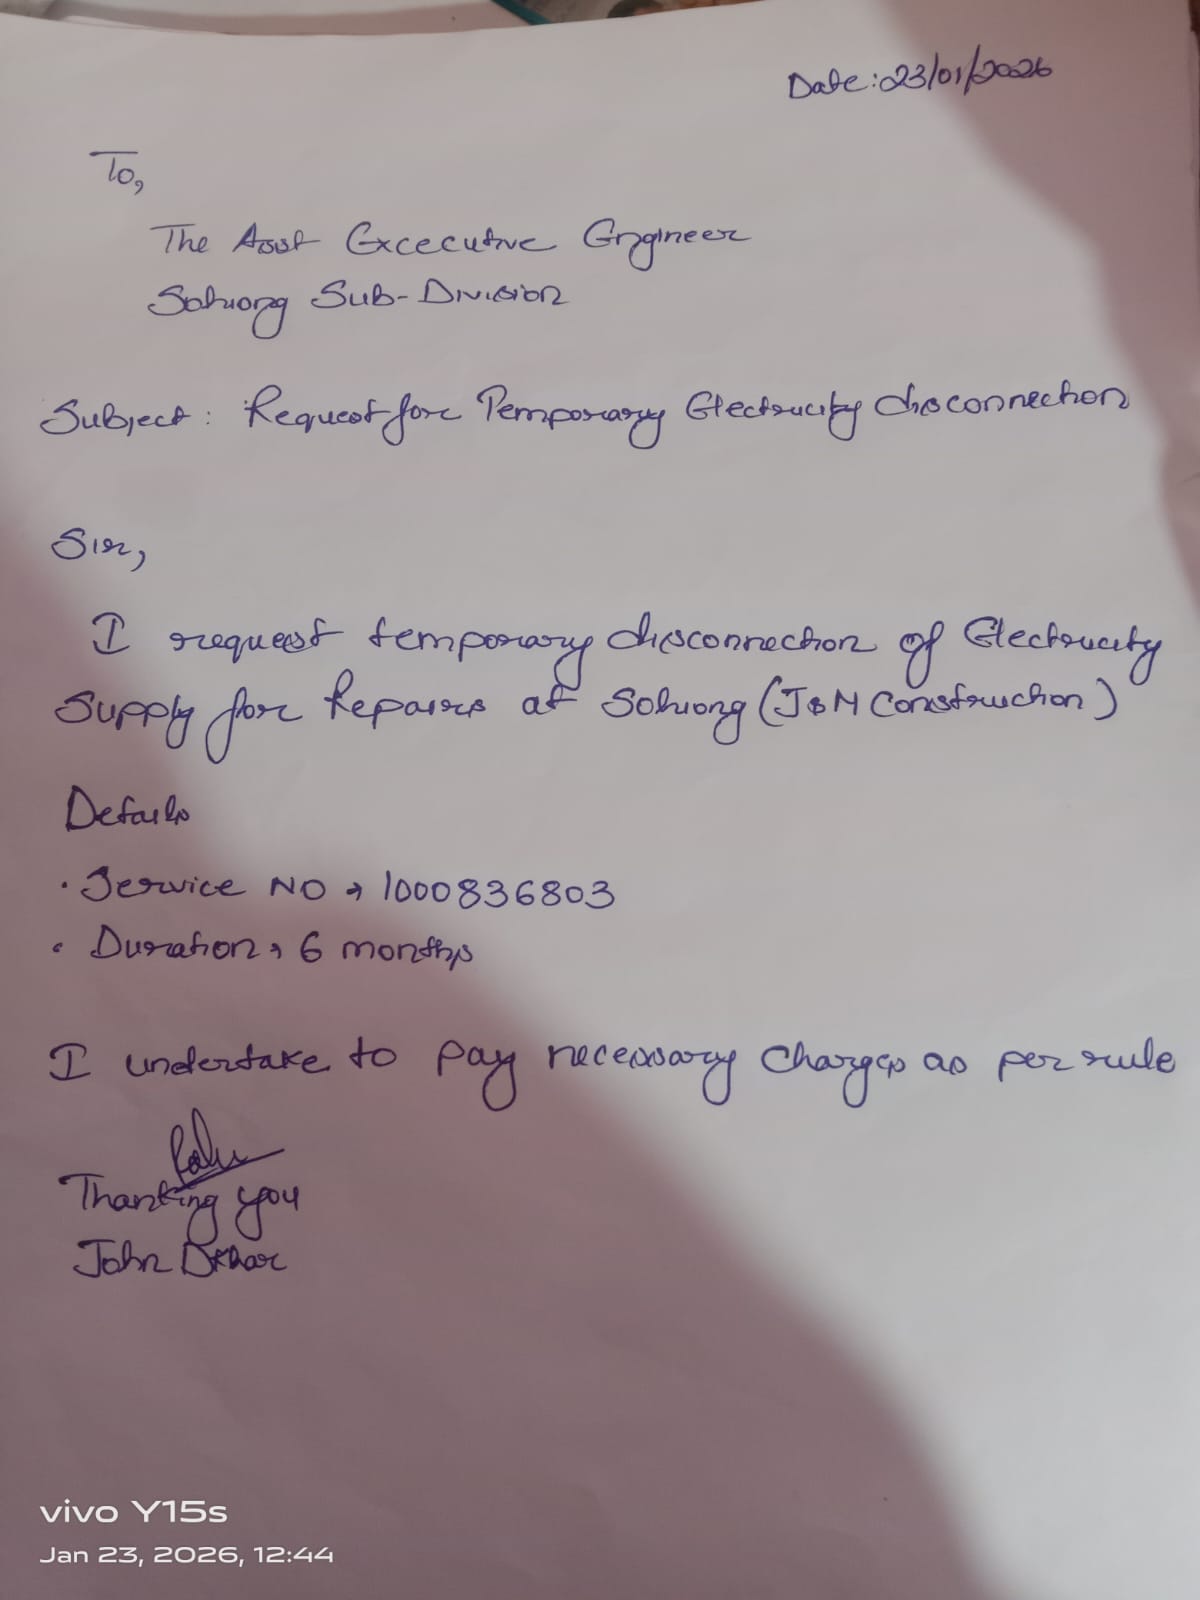 Date: 23/01/2026
To,
The Asst Excecutive Engineer
Sohiong Sub-Division
Subject: Request for Temporary Electricity disconnection
Sir,
I request temporary disconnection of Electricity
Supply for Repairs at Sohiong (J&M Construction)
Details
• Service NO → 1000836803
• Duration → 6 months
I undertake to pay necessary Charges as per rule
Thanking you
John Dkhar
vivo Y15s
Jan 23, 2026, 12:44